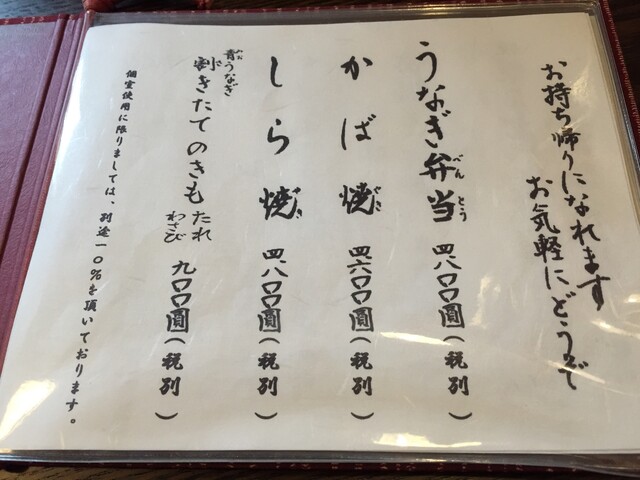 お持ち帰りになれます
お気軽にどうぞ
うなぎ弁当 四、八〇〇圓(税別)
べんとう
かば焼 四、六〇〇圓(税別)
やき
しら焼 四、八〇〇圓(税別)
やき
青うなぎ
あお
割きたてのきも たれ わさび 九〇〇圓(税別)
個室使用に限りましては、別途一〇%を頂いております。